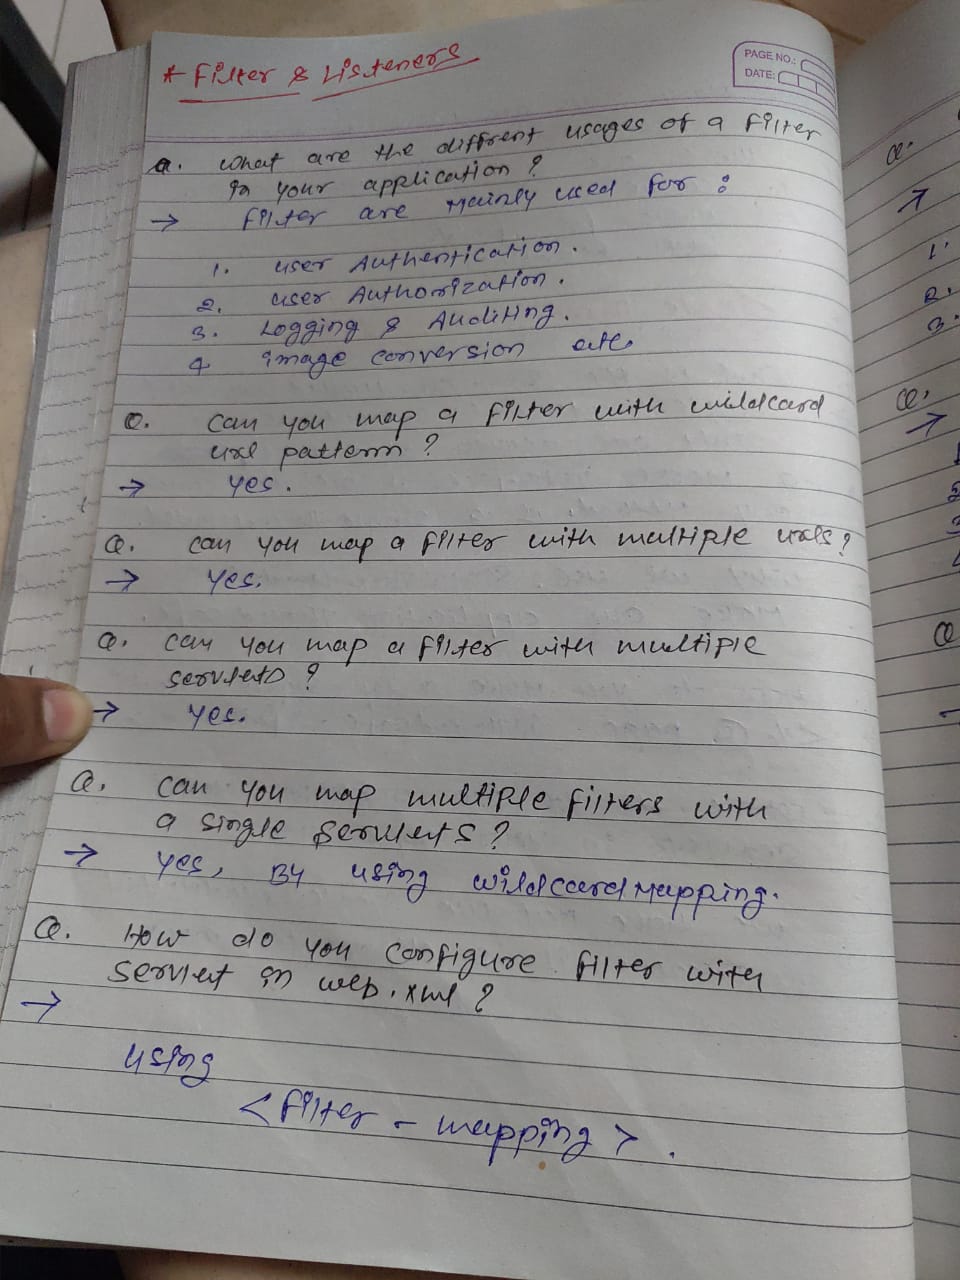 * Filter & Listeners
PAGE NO.:
DATE:
Q. What are the different usages of a filter
in your application ?
→ Filter are Mainly used for :
1. user Authentication.
2. user Authorization.
3. Logging & Auditing.
4. image conversion etc.
Q. can you map a filter with wildcard
url pattern ?
→ yes.
Q. can you map a filter with multiple urls ?
→ Yes.
Q. can you map a filter with multiple
servlets ?
→ Yes.
Q. can you map multiple filters with
a single servlets ?
→ yes, By using wildcard Mapping.
Q. How do you configure filter with
servlet in web.xml ?
→
using
<filter - mapping>.
Q.
→
1.
2.
3.
Q.
→
2
3
Q